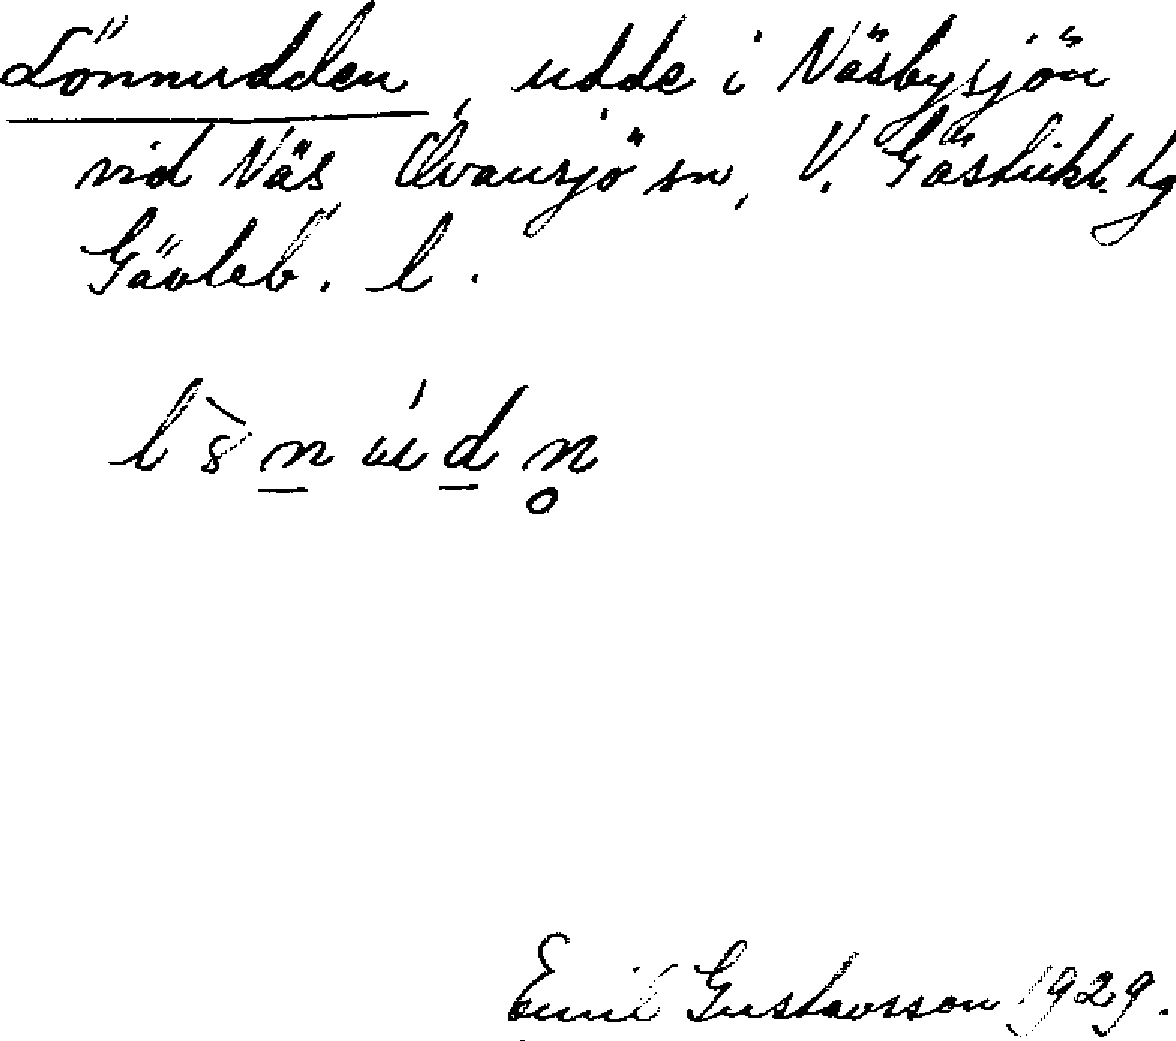 Lönnudden, udde i Näsbysjön
vid Näs Ovansjö sn, V. Gästrikl. tg
Gävleb. l.
Emil Gustavsson 1929.